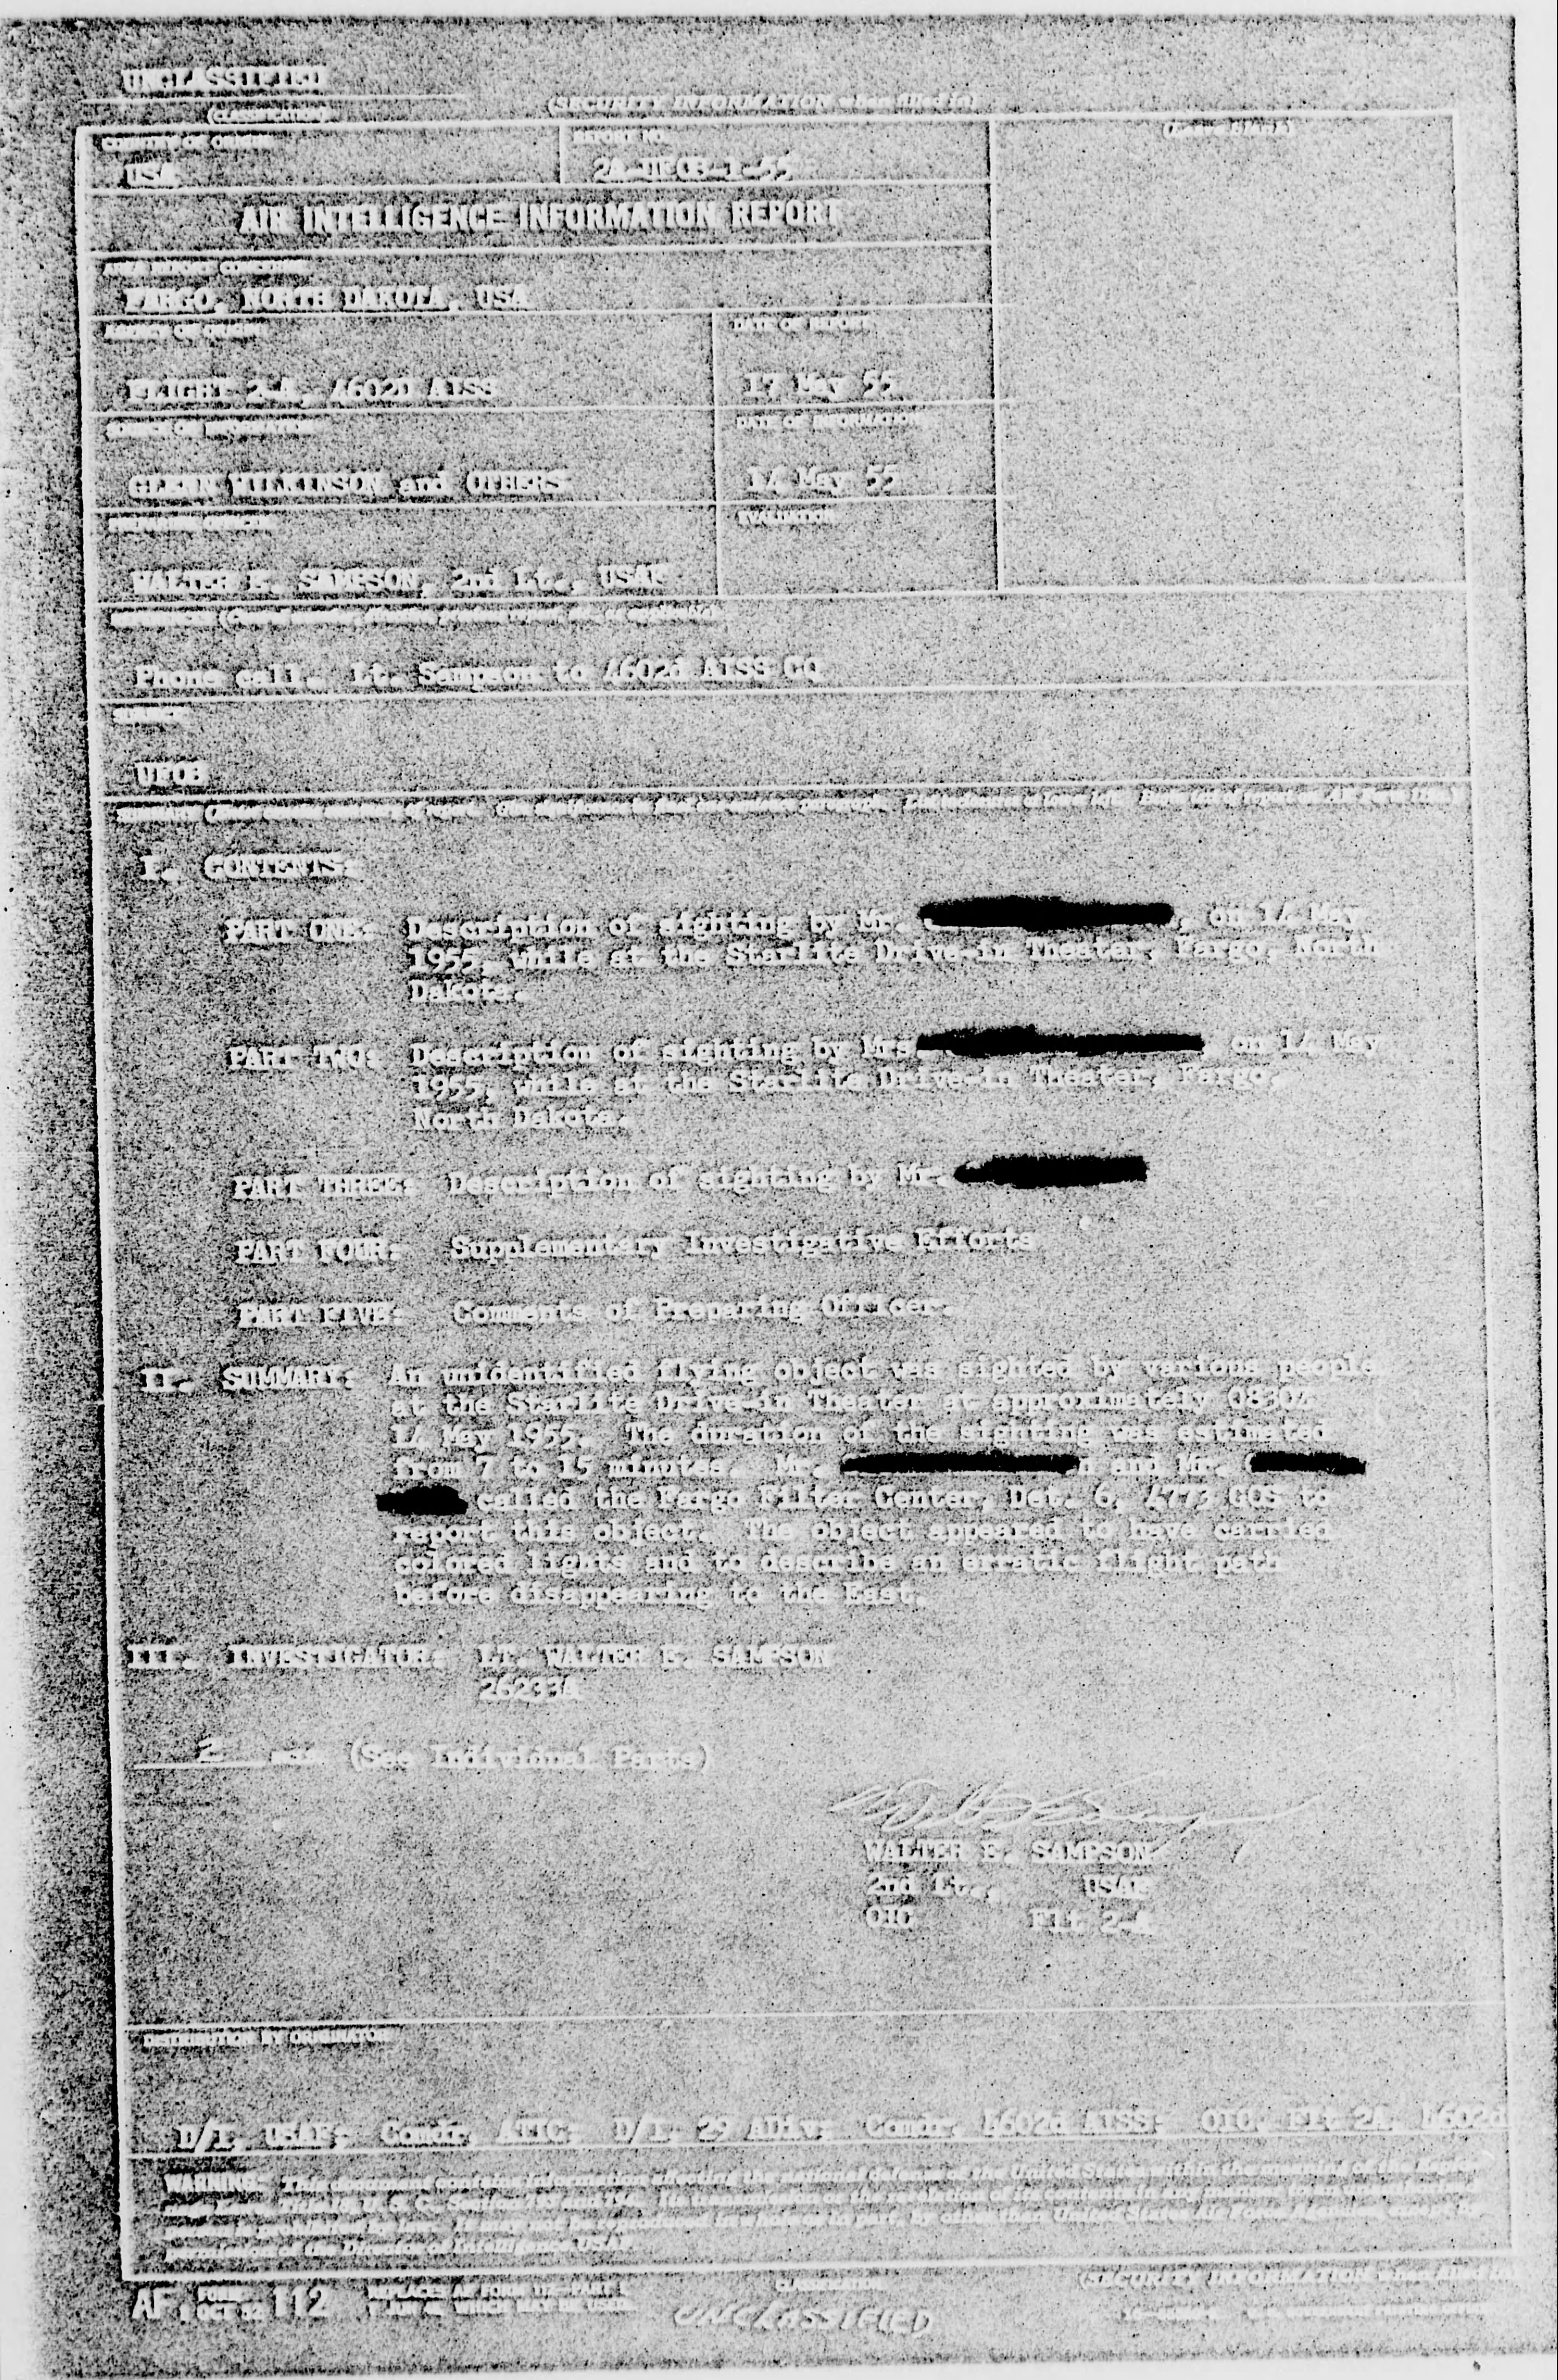 UNCLASSIFIED
(CLASSIFICATION)
(SECURITY INFORMATION when filled in)
COUNTRY OF ORIGIN
REPORT NO.
(Leave Blank)
USA
2A-UFOB-1-55
AIR INTELLIGENCE INFORMATION REPORT
AREA REPORT CONCERNS
FARGO, NORTH DAKOTA, USA
DATE OF REPORT
FLIGHT 2-A, 4602D AISS
17 May 55
SOURCE OF INFORMATION
DATE OF INFORMATION
GLENN WILKINSON and OTHERS
14 May 55
EVALUATION
WALTER E. SAMPSON, 2nd Lt., USAF
Phone call, Lt. Sampson to 4602d AISS CO
SUBJECT
UFOB
I. CONTENTS:
PART ONE: Description of sighting by Mr. , on 14 May
1955, while at the Starlite Drive-in Theater, Fargo, North
Dakota.
PART TWO: Description of sighting by Mrs. on 14 May
1955, while at the Starlite Drive-in Theater, Fargo,
North Dakota.
PART THREE: Description of sighting by Mr.
PART FOUR: Supplementary Investigative Efforts
PART FIVE: Comments of Preparing Officer.
II. SUMMARY: An unidentified flying object was sighted by various people
at the Starlite Drive-in Theater at approximately 0830Z
14 May 1955. The duration of the sighting was estimated
from 7 to 15 minutes. Mr. n and Mr.
called the Fargo Filter Center, Det. 6, 4773 GOS to
report this object. The object appeared to have carried
colored lights and to describe an erratic flight path
before disappearing to the East.
III. INVESTIGATOR: LT. WALTER E. SAMPSON
26233A
2 (See Individual Parts)
WALTER E. SAMPSON
2nd Lt., USAF
OIC Flt 2-A
DISTRIBUTION BY ORIGINATOR
D/I, USAF; Comdr, ATIC; D/I 29 ADiv; Comdr, 4602d AISS; OIC, Flt 2A, 4602d
WARNING: This document contains information affecting the national defense of the United States within the meaning of the
AF FORM 112
1 OCT 52
REPLACES AF FORM 112—PART I
(SECURITY INFORMATION when filled in)
UNCLASSIFIED